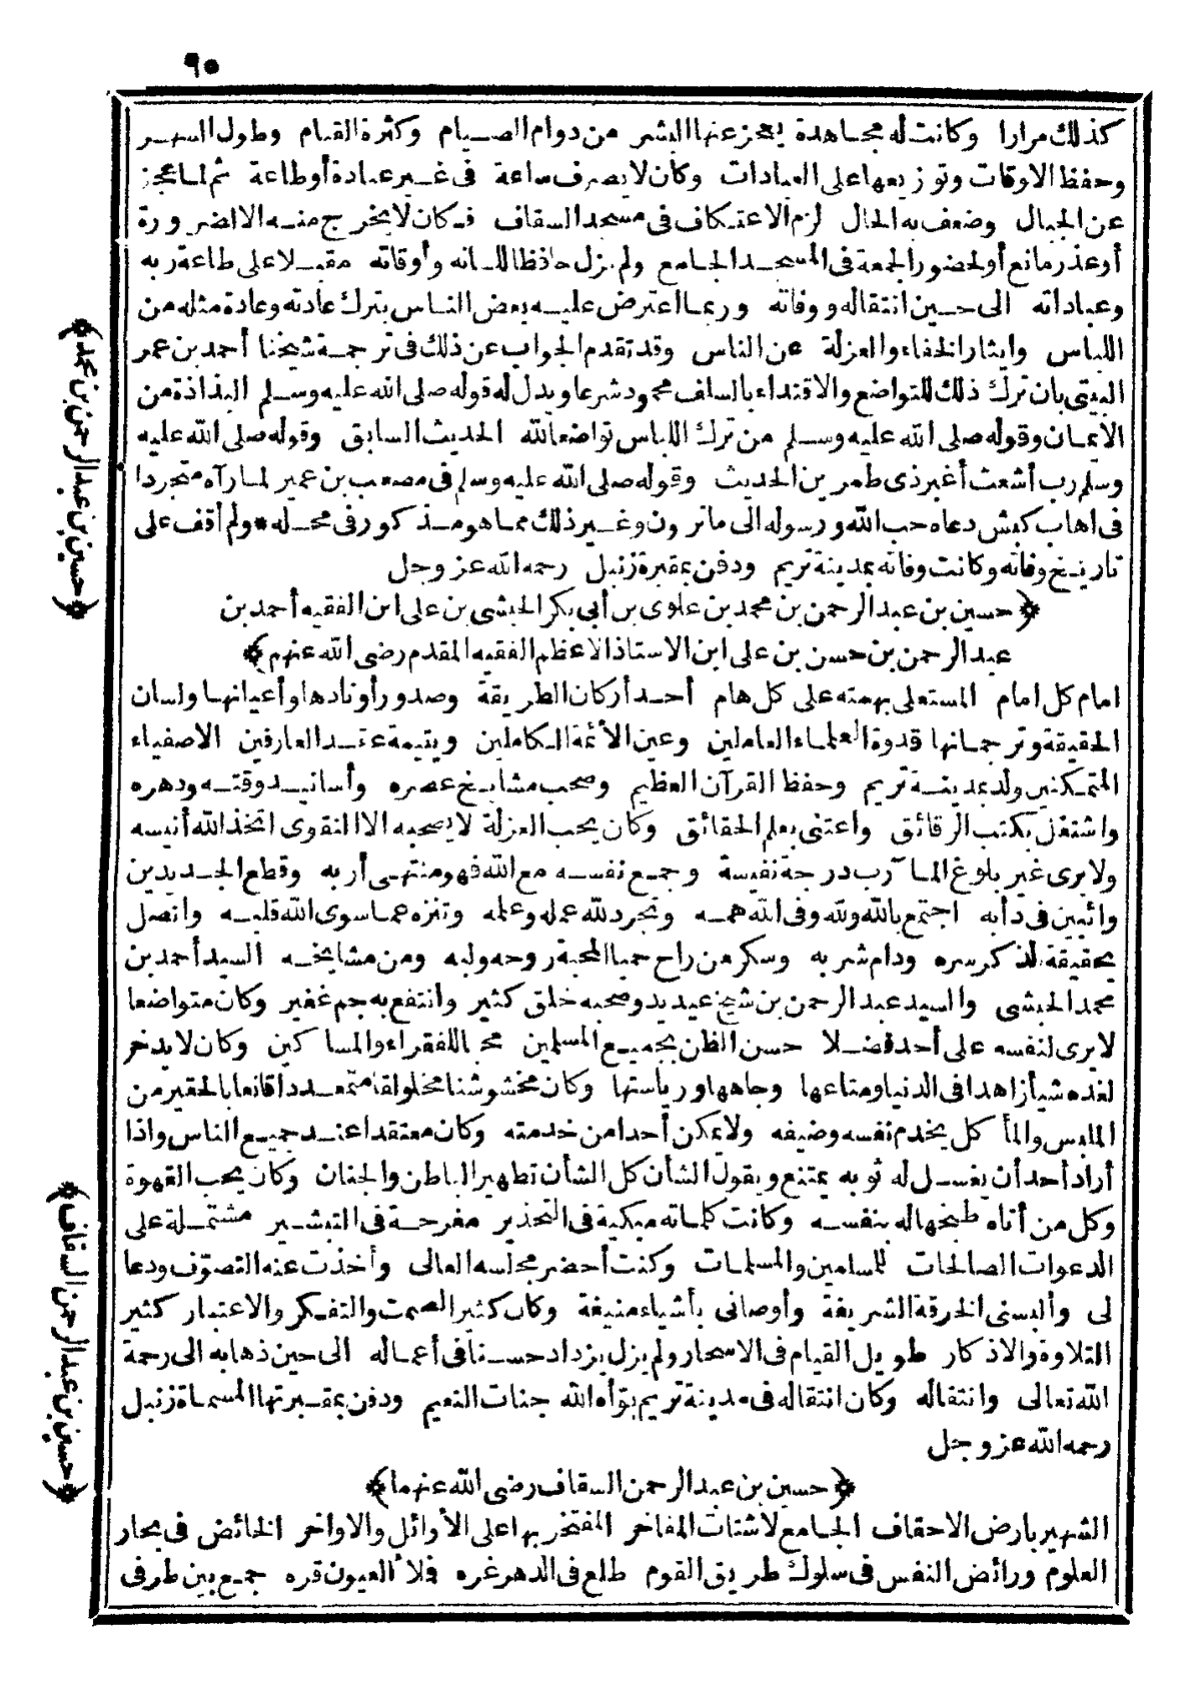 ٩٥
كذلك مرارا وكانت له مجاهدة يعجز عنها البشر من دوام الصيام وكثرة القيام وطول السهر
وحفظ الاوقات وتوزيعها على العبادات وكان لا يصرف ساعة فى غير عبادة أو طاعة ثم لما عجز
عن الجبال وضعف به الحال لزم الاعتكاف فى مسجد السقاف فكان لا يخرج منه الا لضرورة
أو عذر مانع أو لحضور الجمعة فى المسجد الجامع ولم يزل حافظا للسانه وأوقاته مقبلا على طاعة ربه
وعباداته الى حين انتقاله ووفاته وربما اعترض عليه بعض الناس بترك عادته وعادة مثله من
اللباس وايثار الخفاء والعزلة عن الناس وقد تقدم الجواب عن ذلك فى ترجمة شيخنا أحمد بن عمر
البيتى بان ترك ذلك للتواضع والاقتداء بالسلف محمود شرعا ويدل له قوله صلى الله عليه وسلم البذاذة من
الايمان وقوله صلى الله عليه وسلم من ترك اللباس تواضعا لله الحديث السابق وقوله صلى الله عليه
وسلم رب أشعث أغبر ذى طمرين الحديث وقوله صلى الله عليه وسلم فى مصعب بن عمير لما رآه متجردا
فى اهاب كبش دعاه حب الله ورسوله الى ما ترون وغير ذلك مما هو مذكور فى محله * ولم أقف على
تاريخ وفاته وكانت وفاته بمدينة تريم ودفن بمقبرة زنبل رحمه الله عز وجل
﴿حسين بن عبد الرحمن بن محمد بن علوى بن أبى بكر الحبشى بن على ابن الفقيه أحمد بن
عبد الرحمن بن حسن بن على ابن الاستاذ الاعظم الفقيه المقدم رضى الله عنهم﴾
امام كل امام المستعلى بهمته على كل هام أحد أركان الطريقة وصدور أوتادها وأعيانها ولسان
الحقيقة وترجمانها قدوة العلماء العاملين وعين الأئمة الكاملين ويتيمة عقد العارفين الاصفياء
المتمكنين ولد بمدينة تريم وحفظ القرآن العظيم وصحب مشايخ عصره وأسانيد وقته ودهره
واشتغل بكتب الرقائق واعتنى بعلم الحقائق وكان يحب العزلة لا يصحبه الا التقوى اتخذ الله أنيسه
ولا يرى غير بلوغ المآرب درجة نفيسة وجميع نفسه مع الله فهو منتهى أربه وقطع الجديدين
وائبين فى دأبه اجتمع بالله ولله وفى الله همه وتجرد لله عمله وعلمه وتنزه عما سوى الله قلبه واتصل
بحقيقة لذكر سره ودام شربه وسكر من راح حميا المحبة روحه ولبه ومن مشايخه السيد أحمد بن
محمد الحبشى والسيد عبد الرحمن بن شيخ عيديد وصحبه خلق كثير وانتفع به جم غفير وكان متواضعا
لا يرى لنفسه على أحد فضلا حسن الظن بجميع المسلمين محبا للفقراء والمساكين وكان لا يدخر
لغده شيأ زاهدا فى الدنيا ومتاعها وجاهها ورياستها وكان مخشوشنا مخلولقا متمعددا قانعا بالحقير من
الملبس والمأكل يخدم نفسه وضيفه ولا يمكن أحدا من خدمته وكان معتقدا عند جميع الناس واذا
أراد أحد أن يغسل له ثوبه يمتنع ويقول الشأن كل الشأن تطهير الباطن والجنان وكان يحب القهوة
وكل من أتاه طبخها له بنفسه وكانت كلماته مبكية فى التحذير مفرحة فى التبشير مشتملة على
الدعوات الصالحات للمسلمين والمسلمات وكنت أحضر مجلسه العالى وأخذت عنه التصوّف ودعا
لى وألبسنى الخرقة الشريفة وأوصانى بأشياء منيفة وكان كثير الصمت والتفكر والاعتبار كثير
التلاوة والاذكار طويل القيام فى الاسحار ولم يزل يزداد حسنا فى أعماله الى حين ذهابه الى رحمة
الله تعالى وانتقاله وكان انتقاله فى مدينة تريم بوّأه الله جنات النعيم ودفن بمقبرتها المسماة زنبل
رحمه الله عز وجل
﴿حسين بن عبد الرحمن السقاف رضى الله عنهما﴾
الشهير بارض الاحقاف الجامع لاشتات المفاخر المفتخر بها على الأوائل والاواخر الخائض فى بحار
العلوم ورائض النفس فى سلوك طريق القوم طلع فى الدهر غره فلأ العيون قره جميع بين طرفى
﴿حسين بن عبد الرحمن بن محمد﴾
﴿حسين بن عبد الرحمن السقاف﴾